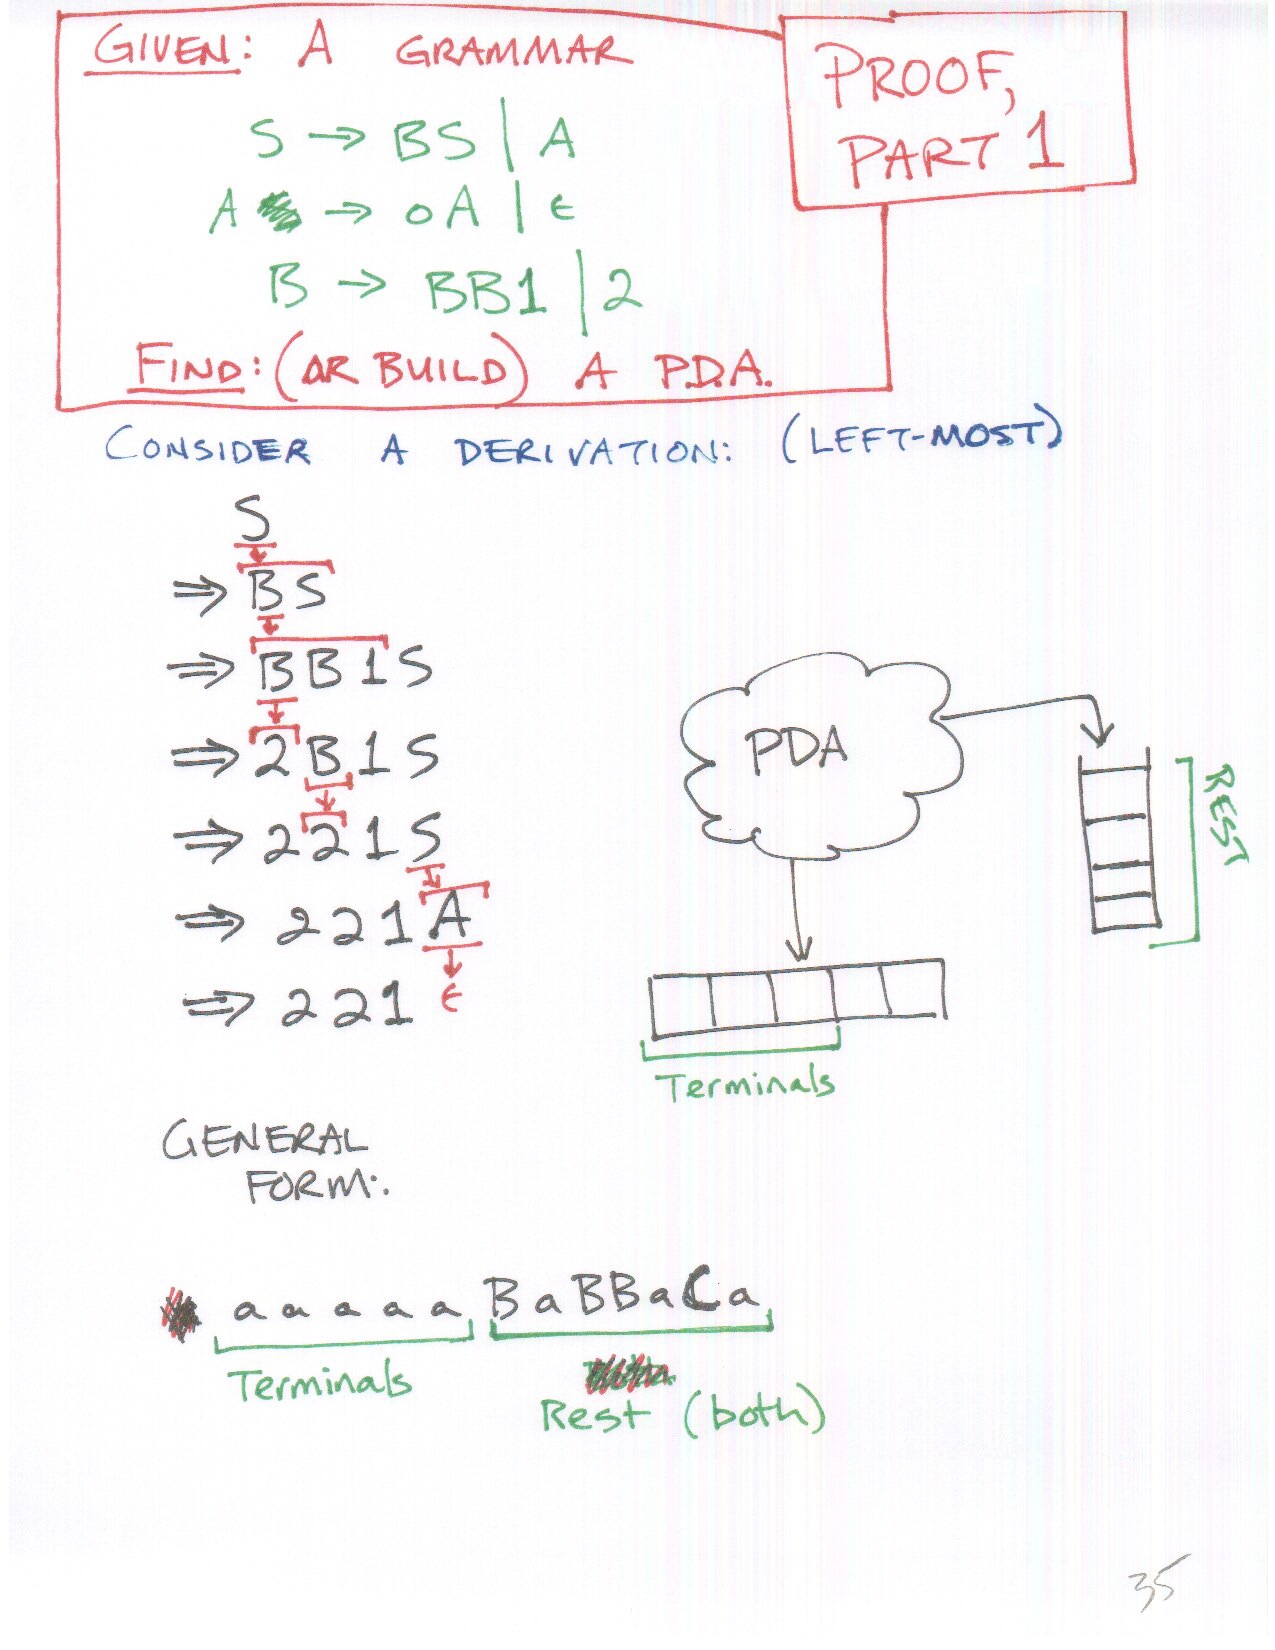 GIVEN: A GRAMMAR
PROOF,
PART 1
S → BS | A
A → 0A | ϵ
B → BB1 | 2
FIND: (OR BUILD) A P.D.A.
CONSIDER A DERIVATION: (LEFT-MOST)
S
⇒ BS
⇒ BB1S
⇒ 2B1S
⇒ 221S
⇒ 221A
⇒ 221 ϵ
PDA
REST
Terminals
GENERAL
FORM:
a a a a a B a B B a C a
Terminals
Rest (both)
35